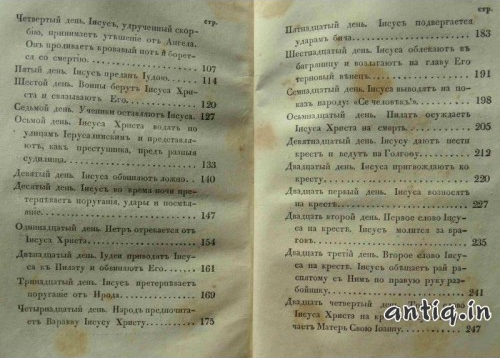 стр.
Четвертый день. Іисусъ, удрученный скор-
бію, принимаетъ утѣшеніе отъ Ангела.
Онъ проливаетъ кровавый потъ и борет-
ся со смертію. 107
Пятый день. Іисусъ преданъ Іудою. 114
Шестой день. Воины берутъ Іисуса Хри-
ста и связываютъ Его. 120
Седьмой день. Ученики оставляютъ Іисуса. 127
Осьмой день. Іисуса Христа водятъ по
улицамъ Іерусалимскимъ и представля-
ютъ, какъ преступника, предъ разныя
судилища. 133
Девятый день. Іисуса обвиняютъ ложно. 140
Десятый день. Іисусъ во время ночи пре-
терпѣваетъ поруганія, удары и посмѣя-
ніе. 147
Одиннадцатый день. Петръ отрекается отъ
Іисуса Христа. 154
Двѣнадцатый день. Іудеи приводятъ Іису-
са къ Пилату и обвиняютъ Его. 161
Тринадцатый день. Іисусъ претерпѣваетъ
поруганіе отъ Ирода. 169
Четырнадцатый день. Народъ предпочита-
етъ Варавву Іисусу Христу. 175
стр.
Пятнадцатый день. Іисусъ подвергается
ударамъ бича. 183
Шестнадцатый день. Іисуса облекаютъ въ
багряницу и возлагаютъ на главу Его
терновый вѣнецъ. 191
Семнадцатый день. Іисуса выводятъ на по-
казъ народу: «Се человѣкъ!». 198
Осмнадцатый день. Пилатъ осуждаетъ
Іисуса Христа на смерть. 205
Девятнадцатый день. Іисусу даютъ нести
крестъ и ведутъ на Голгоѳу. 212
Двадцатый день. Іисуса пригвождаютъ ко
кресту. 220
Двадцать первый день. Іисуса возносятъ
на крестъ. 227
Двадцать второй день. Первое слово Іису-
са на крестѣ. Іисусъ молится за вра-
говъ. 235
Двадцать третій день. Второе слово Іису-
са на крестѣ. Іисусъ обѣщаетъ рай ра-
спятому съ Нимъ по правую руку раз-
бойнику. 241
Двадцать четвертый день.
Іисуса Христа на кре
чаетъ Матерь Свою Іоанну. 247
antiq.in